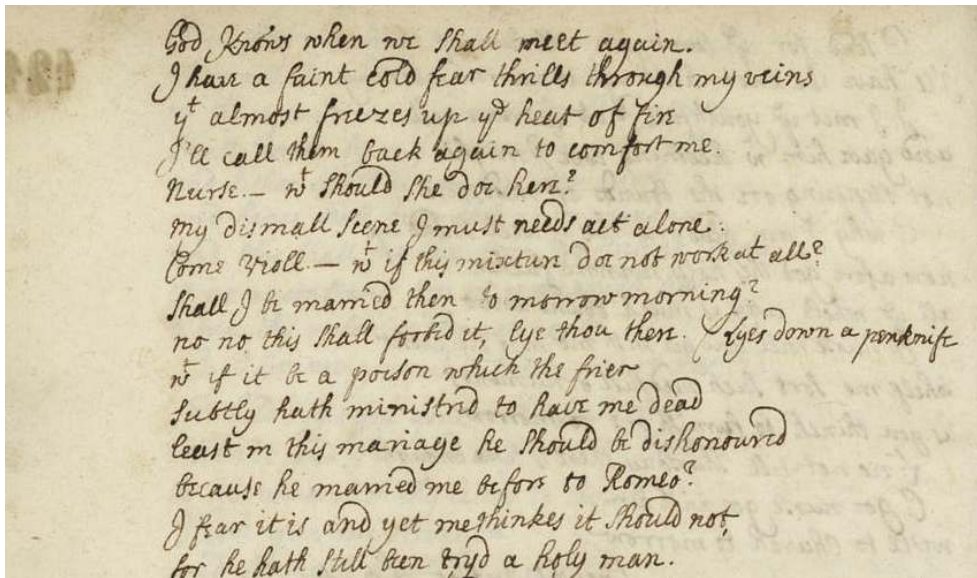 God Knows when we shall meet again.
I have a faint cold fear thrills through my veins
yt almost freezes up ye heat of fire
I'll call them back again to comfort me.
Nurse.— wt should she doe here?
my dismall scene I must needs act alone.
Come Violl.— wt if this mixture doe not work at all?
Shall I be married then to morrow morning?
no no this shall forbid it, lye thou there. (Lyes down a penknife
wt if it be a poison which the frier
subtly hath ministred to have me dead
least in this mariage he should be dishonoured
because he married me before to Romeo?
I fear it is and yet methinkes it should not,
for he hath still been tryd a holy man.